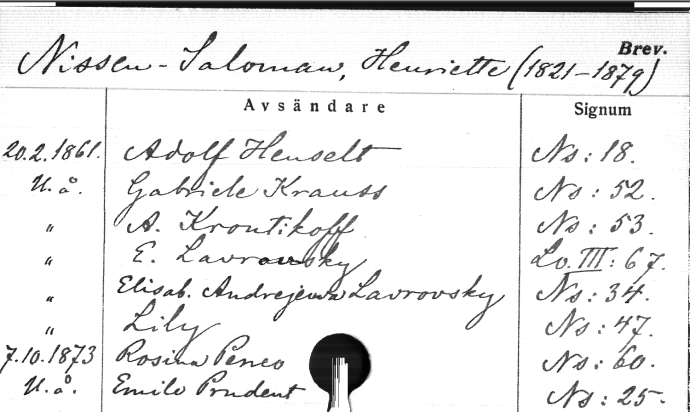 Brev.
Nissen-Saloman, Henriette (1821-1879)
Avsändare Signum
20.2.1861. Adolf Henselt Ns: 18.
U.å. Gabriele Krauss Ns: 52.
" A. Kroutikoff Ns: 53.
" E. Lavrovsky Lv. III: 67.
" Elisab. Andrejewa Lavrovsky Ns: 34.
" Lily Ns: 47.
7.10.1873 Rosina Penco Ns: 60.
U.å. Emile Prudent Ns: 25.